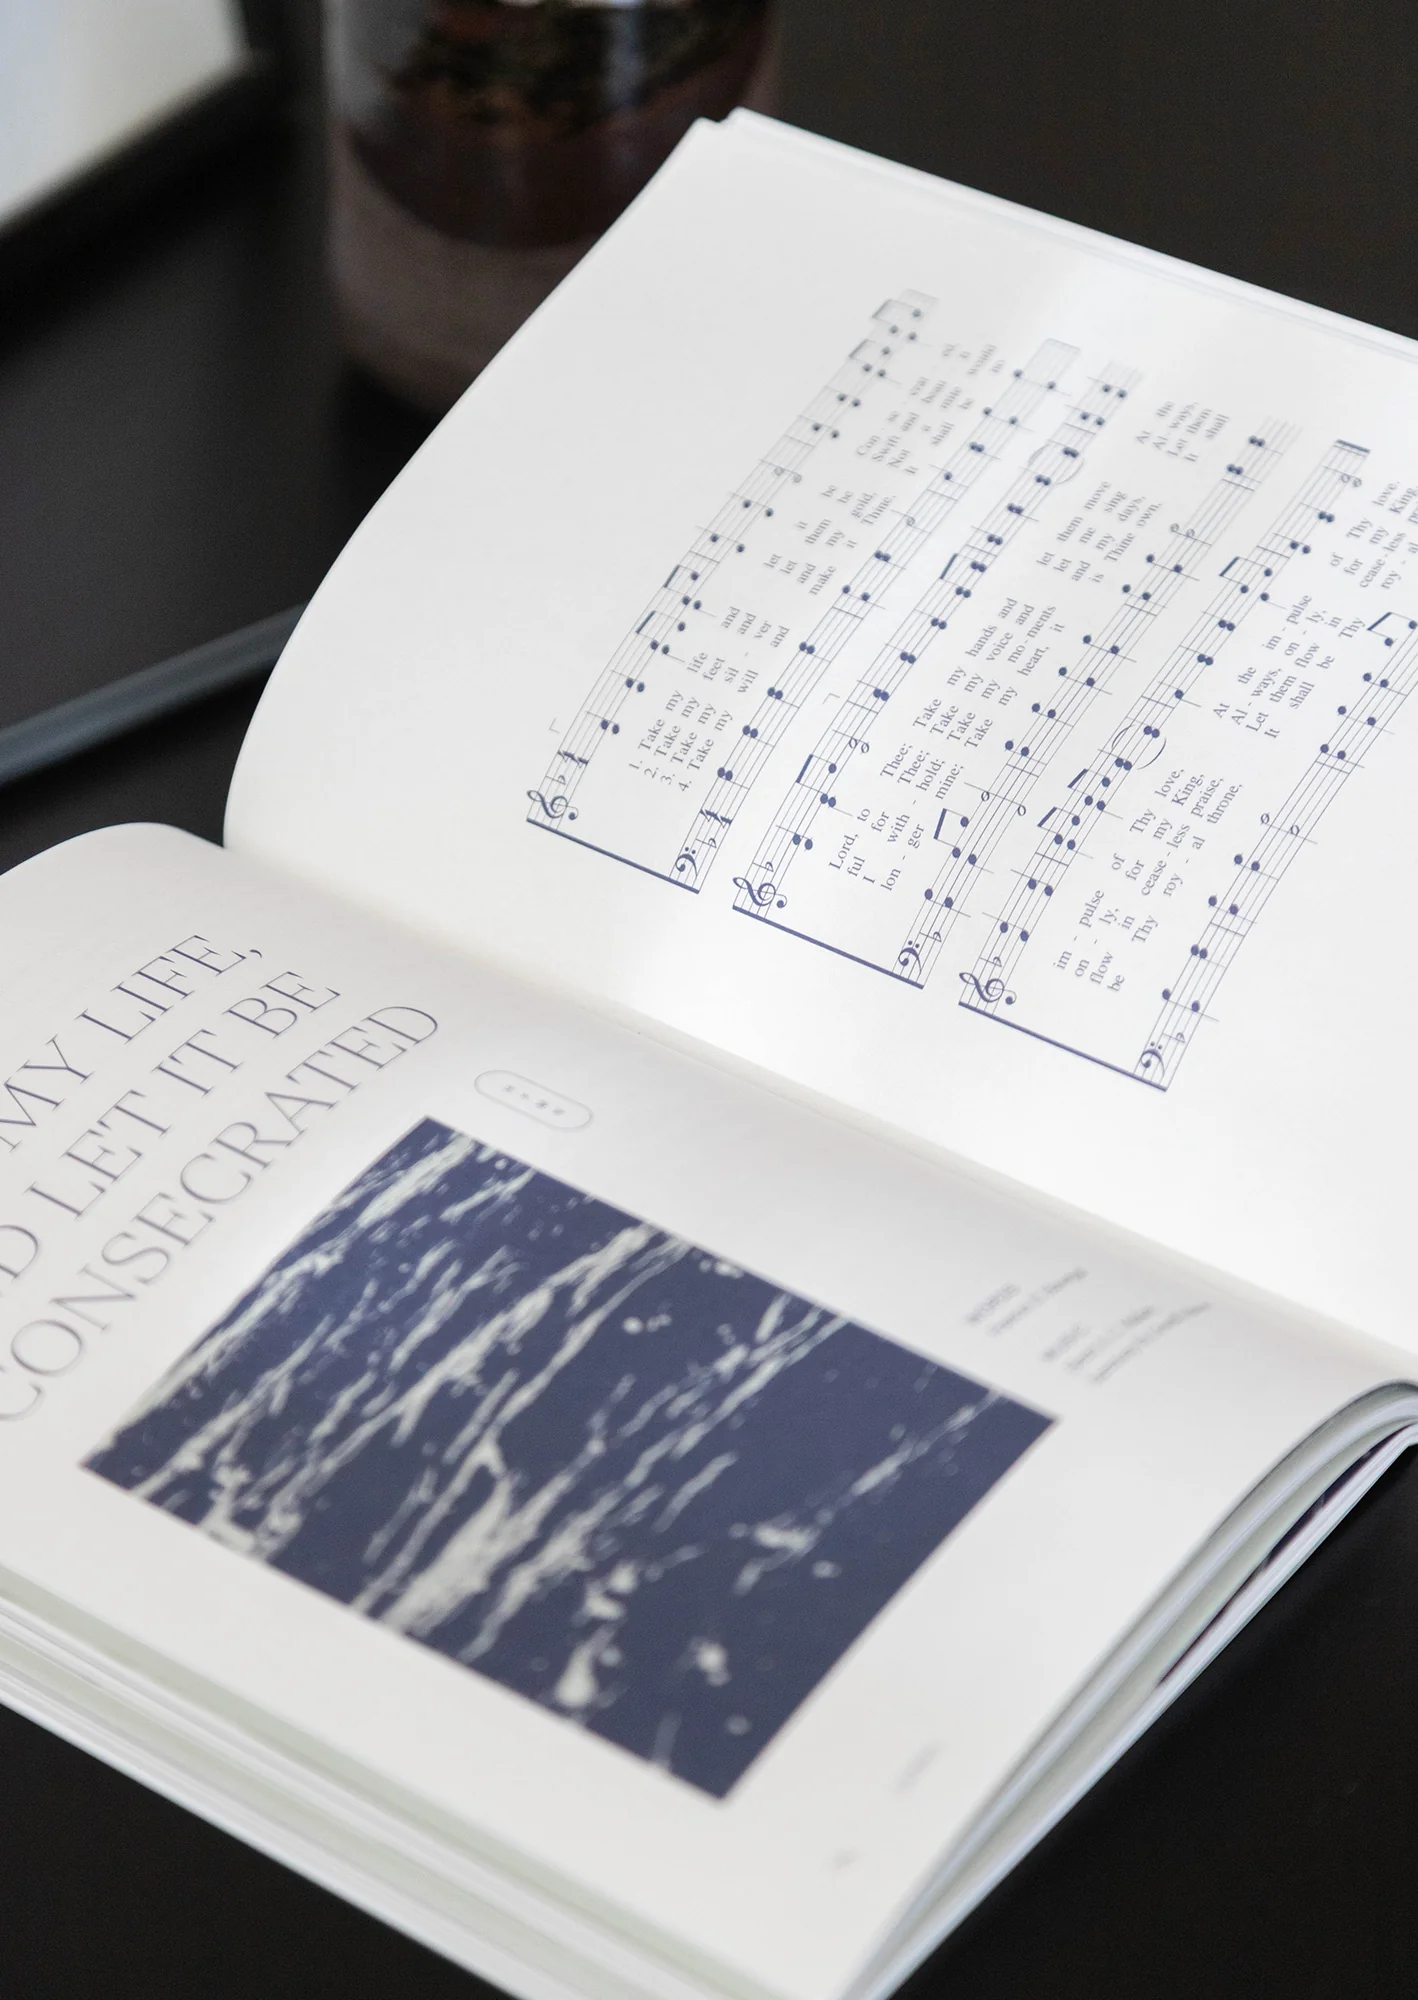 MY LIFE,
LET IT BE
CONSECRATED
WORDS
MUSIC
1. Take my life and let it be Con - se
2. Take my feet and let them be Swift and beau
3. Take my sil - ver and my gold, Not a mite would
4. Take my will and make it Thine, It shall be no
Lord, to Thee; Take my hands and let them move At the
ful for Thee; Take my voice and let me sing Al - ways,
I with - hold; Take my mo - ments and my days, Let them
lon - ger mine; Take my heart, it is Thine own, It shall
im - pulse of Thy love, At the im - pulse of Thy love.
on - ly, for my King, Al - ways, on - ly, for my King,
flow in cease - less praise, Let them flow in cease - less
be Thy roy - al throne, It shall be Thy roy - al